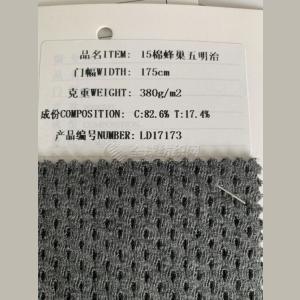 品名ITEM: 15棉蜂巢五明治
门幅WIDTH: 175cm
克重WEIGHT: 380g/m2
成份COMPOSITION: C:82.6% T:17.4%
产品编号NUMBER: LD17173